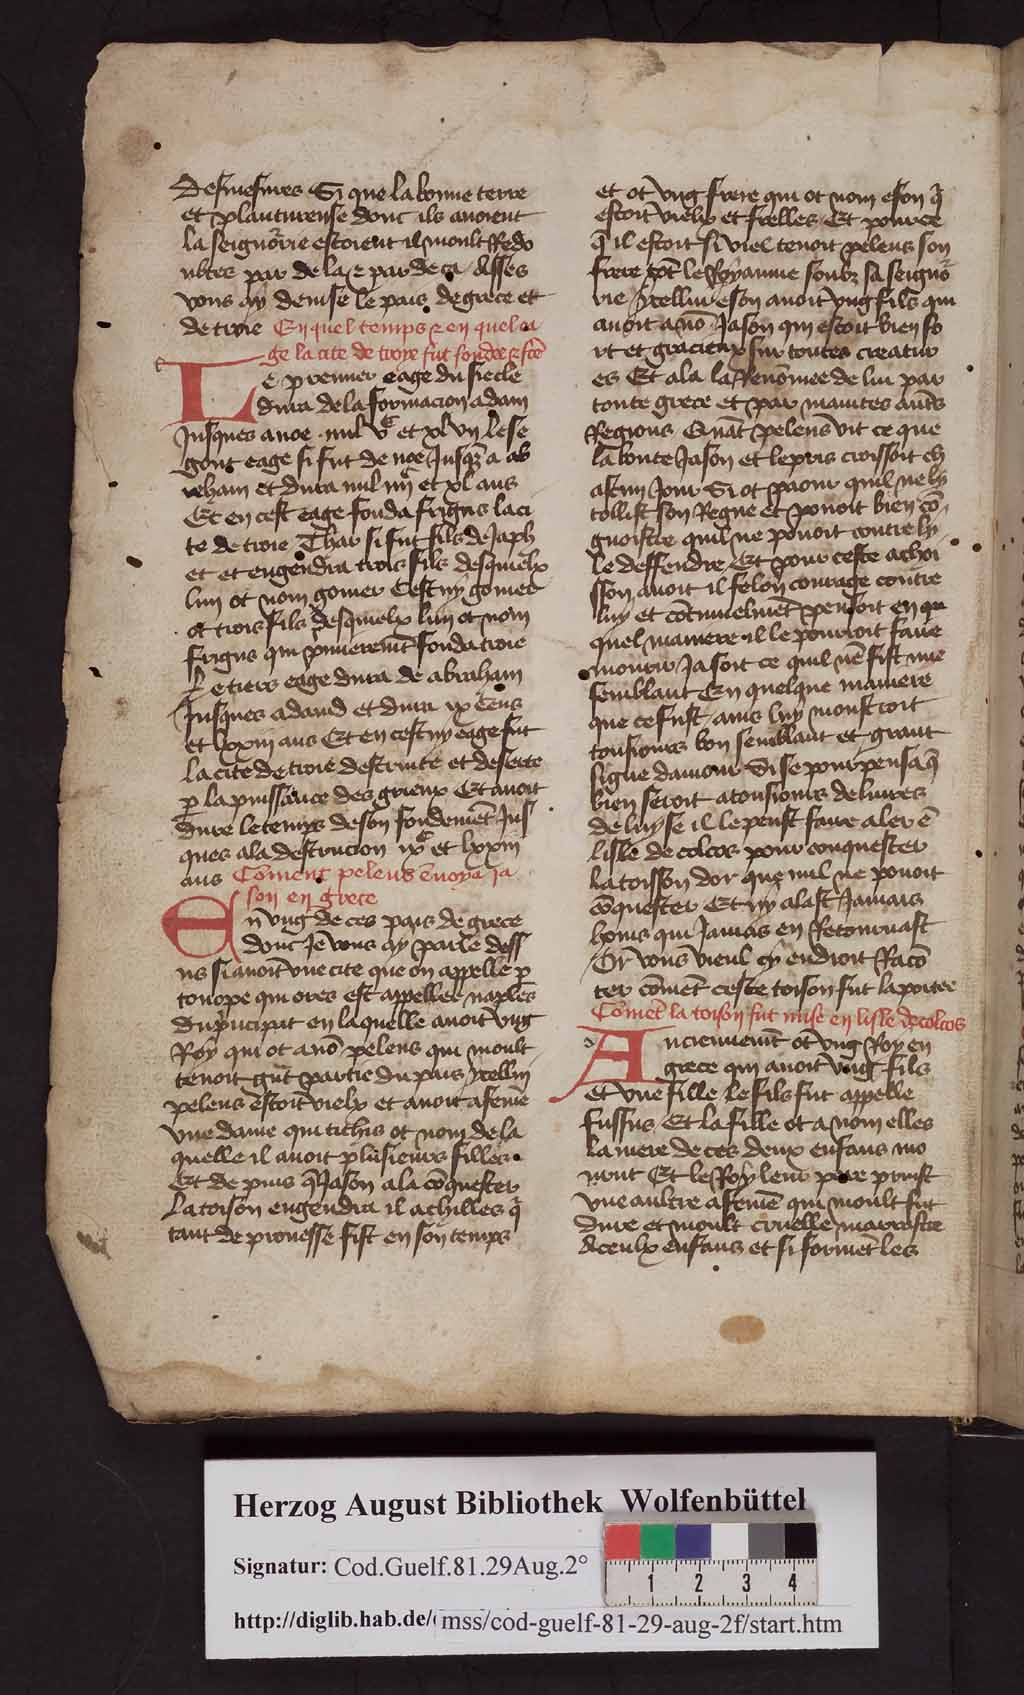 Desmesmes Si que la bonne terre
et plantureuse donc ils auoient
la seignorie estoient il moult Redo
ubtes par de la et par de ca Asses
vous ay deuise le pais de grece et
de troie En quel temps et en quel ea
ge la cite de troye fut fondee
Le premier eage du siecle
dura de la formacion adam
Jusques a noe et xlvij Le se
gont eage si fut de noe Jusqz a ab
reham et dura mil iiij et xl ans
Et en cest eage fonda frigus la ci
te de troie Thar si fut fils de Japh
et et engendra trois fils desquelx
lun ot nom gomer Cestuy gomer
ot trois fils desquelx lun ot nom
frigus qui p̃mierem̃t fonda troie
Le tiers eage dura de abraham
Jusques a dauid et dura ix cens
et lxxiij ans Et en cestuy eage fut
la cite de troie destruite et deserte
p la puissance des grieux Et auoit
dure le temps de son fondemẽt Jus
ques a la destrucion ixc et lxxiij
ans Cõment peleus ẽnoya Ja
son en grece
En vng de ces pais de grece
donc Je vous ay parle dess
us si auoit vne cite que on appelle p
tonope qui ores est appellee naples
Du p̃ncipat en laquelle auoit vng
Roy qui ot a nõ peleus qui moult
tenoit grãt partie du pais ycellui
peleus estoit vielx et auoit a feme
vne dame qui tichis ot nom de la
quelle il auoit plusieurs filles
Et de puis q̃ Jason ala cõquester
La toison engendra il achilles q̃
tant de prouesse fist en son temps
et ot vng frere qui ot nom eson q̃
estoit vielx et frelles Et pource
q̃ il estoit si viel tenoit peleus son
frere tot le Royaume soubz sa seigno
rie ycellui eson auoit vng fils qui
auoit a nõ Jason qui estoit bien fo
rt et gracieux sur toutes creatur
es Et ala la Renõmee de lui par
toute grece et par maintes autrs
Regions Quãt peleus vit ce que
la bonte Jason et le pris croissoit ch
ascun Jour Si ot paour quil ne ly
tollist son Regne et pouoit bien cõ
gnoistre quil ne pouoit contre ly
le deffendre Et pour ceste achoi
sson auoit il felon courage contre
luy et cõtinuelmẽt pensoit en qu
quel maniere il le pourroit faire
mourir Ja soit ce quil nẽ fist mie
semblant En quelque maniere
que ce fust ains luy monstroit
tousiours bon semblant et grant
signe damour Si se pourpensa q̃
bien seroit a tousiours deliures
de luy se il le peust faire aler ẽ
lisle de colcos pour conquester
la toison dor que nul ne pouoit
cõquester Et ny alast Jamais
homs qui Jamais en Retournast
Or vous vieul cy endroit Racõ
ter cõment ceste toison fut laportee
Comẽt la toison fut mise en lisle de colcos
Anciennemẽt ot vng Roy en
grece qui auoit vng fils
et vne fille le fils fut appelle
fussus Et la fille ot a nom elles
la mere de ces deux enfans mo
urut Et le Roy leur pere prinst
vne aultre a feme qui moult fut
dure et moult cruelle marrastre
a ceulx enfans et si formẽt les
Herzog August Bibliothek Wolfenbüttel
Signatur: Cod.Guelf.81.29Aug.2°
1 2 3 4
http://diglib.hab.de/mss/cod-guelf-81-29-aug-2f/start.htm